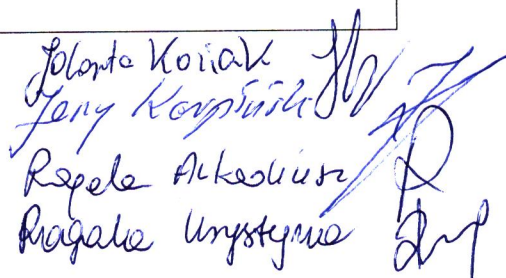 Jolanta Koziak
Jerzy Karpiński
Rogala Arkadiusz
Rogala Krystyna